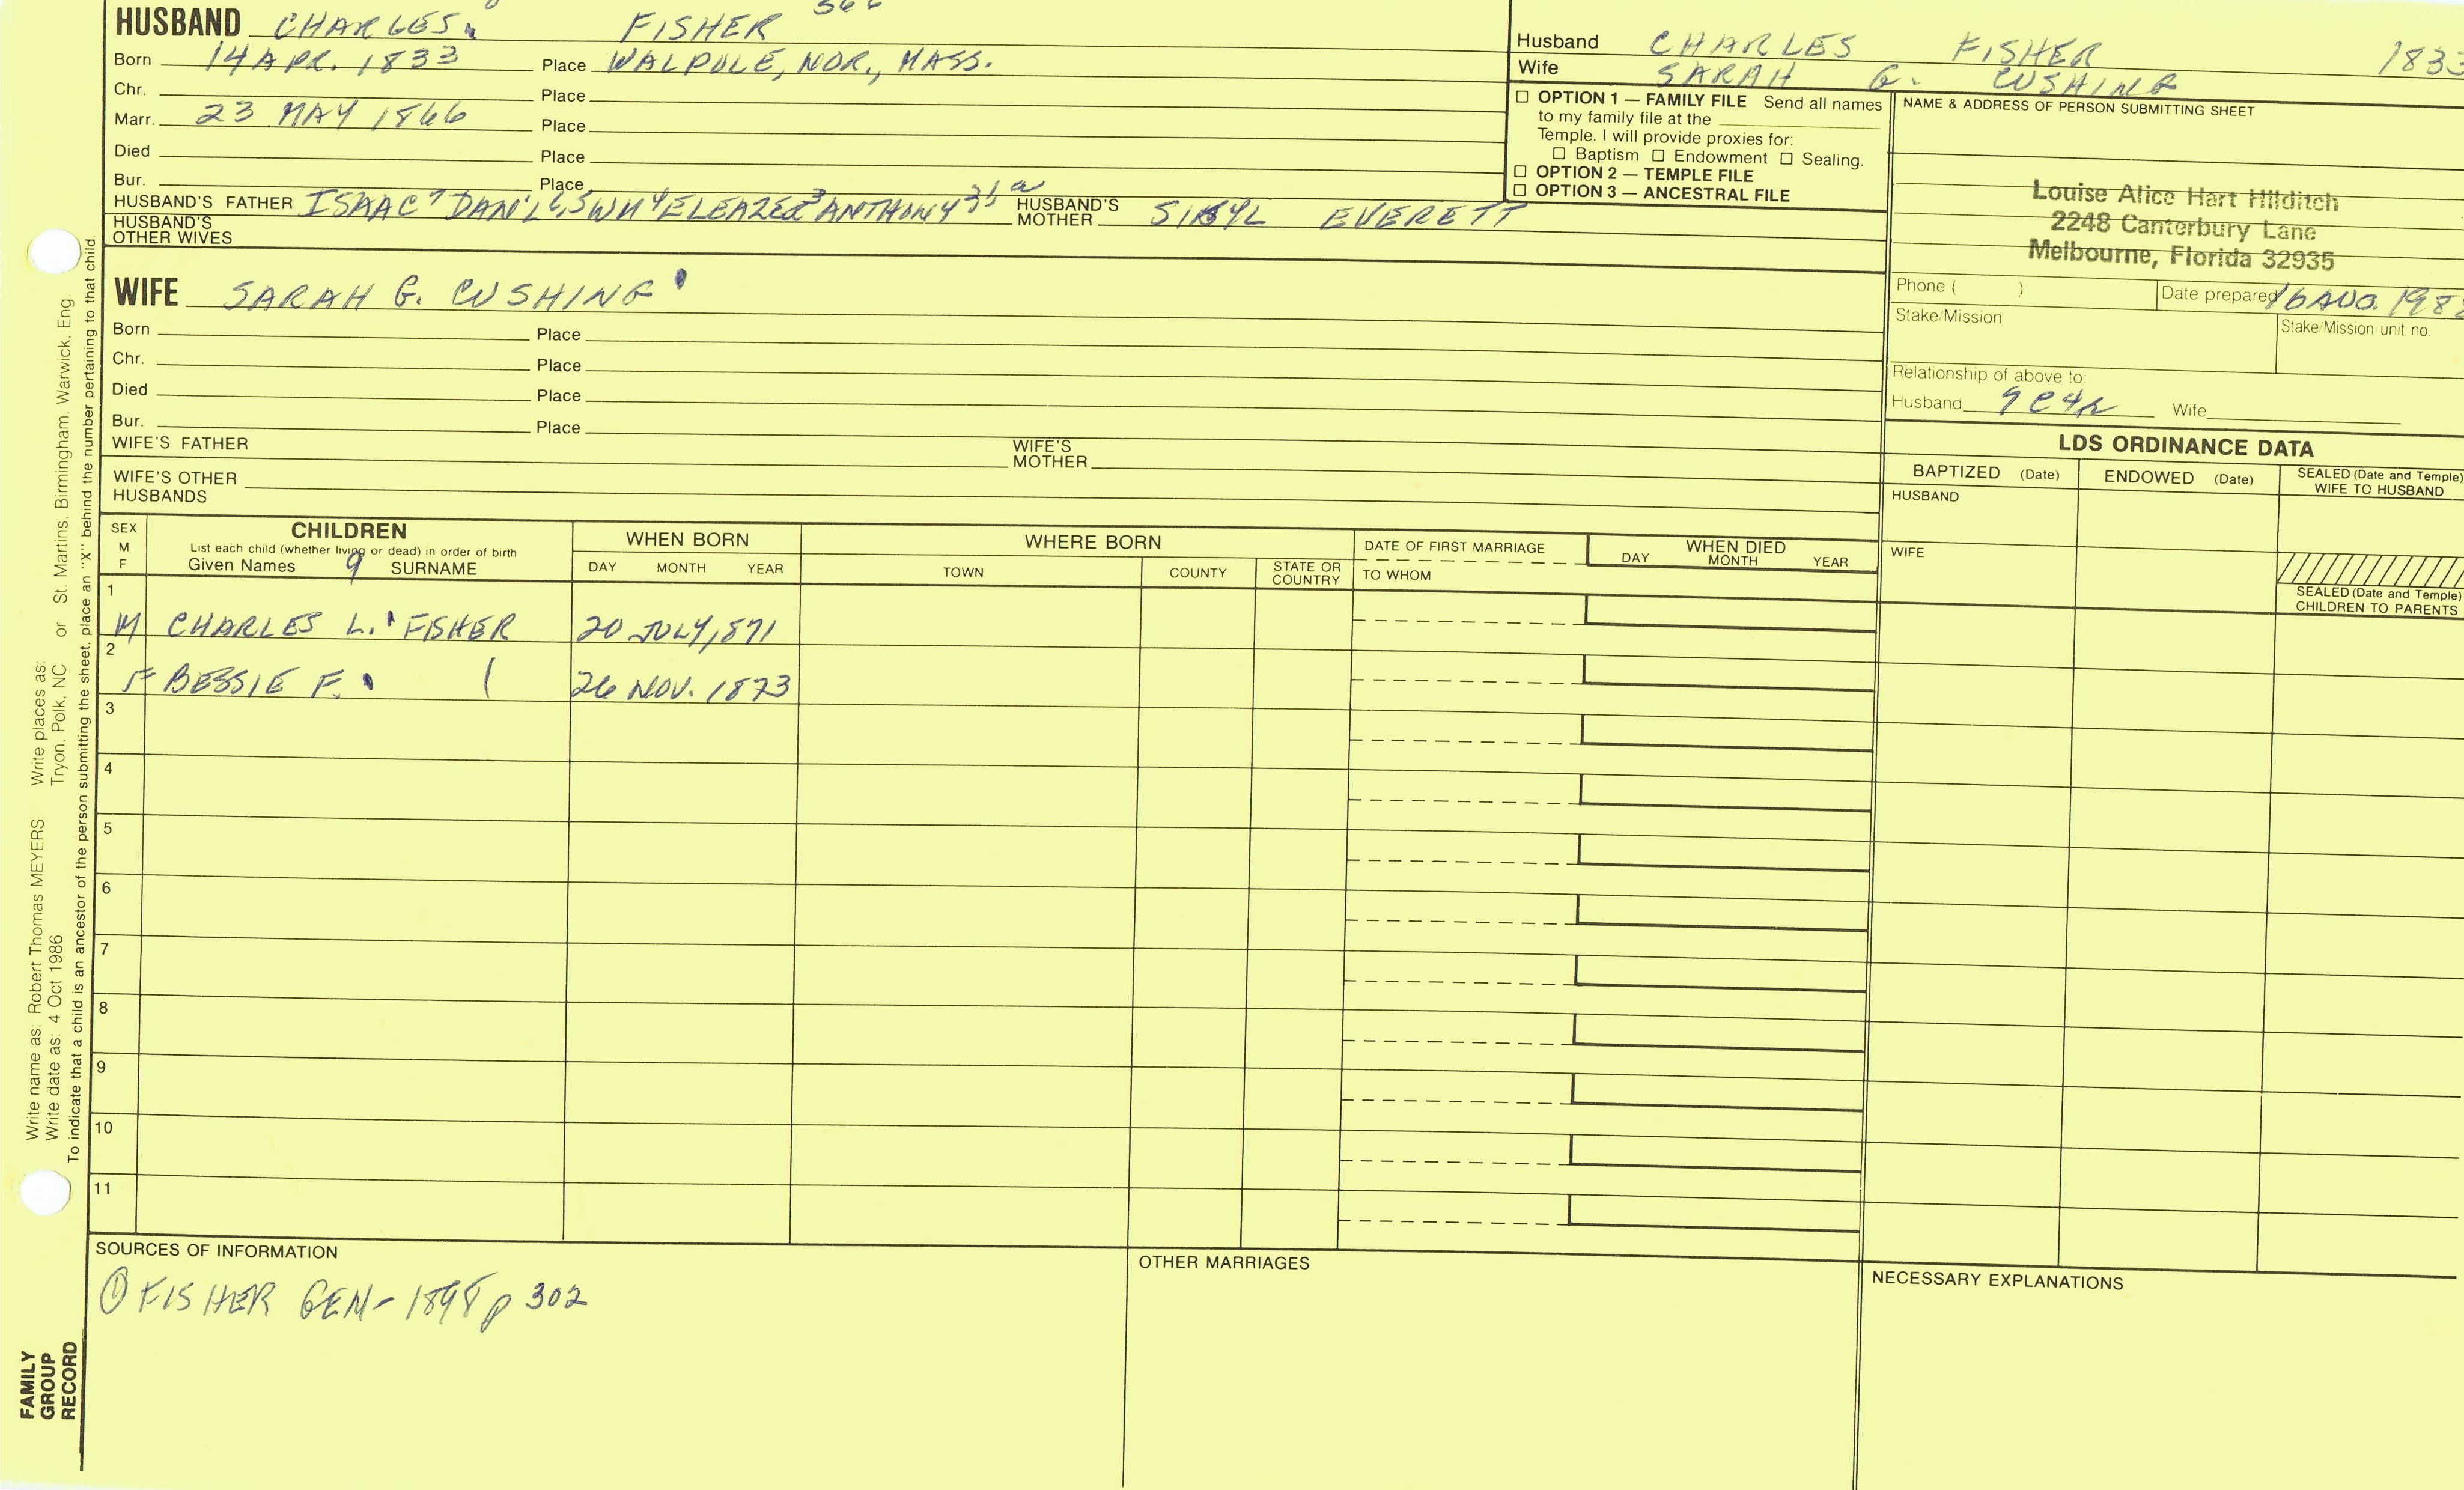 HUSBAND CHARLES FISHER
Born 14 APR. 1833 Place WALPOLE, NOR., MASS.
Chr. Place
Marr. 23 MAY 1866 Place
Died Place
Bur. Place
HUSBAND'S FATHER ISAAC 7 DAN'L 6,5 WM 4 ELEAZER 3 ANTHONY HUSBAND'S MOTHER SIBYL EVERETT
HUSBAND'S OTHER WIVES
WIFE SARAH G. CUSHING
Born Place
Chr. Place
Died Place
Bur. Place
WIFE'S FATHER WIFE'S MOTHER
WIFE'S OTHER HUSBANDS
Husband CHARLES FISHER 1833
Wife SARAH G. CUSHING
☐ OPTION 1 — FAMILY FILE Send all names
to my family file at the
Temple. I will provide proxies for:
☐ Baptism ☐ Endowment ☐ Sealing.
☐ OPTION 2 — TEMPLE FILE
☐ OPTION 3 — ANCESTRAL FILE
NAME & ADDRESS OF PERSON SUBMITTING SHEET
Louise Alice Hart Hilditch
2248 Canterbury Lane
Melbourne, Florida 32935
Phone ( ) Date prepared 16 AUG. 198
Stake/Mission Stake/Mission unit no.
Relationship of above to:
Husband 9C4R Wife
LDS ORDINANCE DATA
BAPTIZED (Date) ENDOWED (Date) SEALED (Date and Temple)
WIFE TO HUSBAND
HUSBAND
WIFE
SEALED (Date and Temple)
CHILDREN TO PARENTS
SEX
M
F
CHILDREN
List each child (whether living or dead) in order of birth
Given Names 9 SURNAME
WHEN BORN
DAY MONTH YEAR
WHERE BORN
TOWN COUNTY STATE OR COUNTRY
DATE OF FIRST MARRIAGE
TO WHOM
WHEN DIED
DAY MONTH YEAR
1
M CHARLES L. FISHER 20 JULY, 871
2
F BESSIE F. 26 NOV. 1873
3
4
5
6
7
8
9
10
11
SOURCES OF INFORMATION
① FISHER GEN- 1898 p 302
OTHER MARRIAGES
NECESSARY EXPLANATIONS
Write name as: Robert Thomas MEYERS Write places as:
Write date as: 4 Oct 1986 Tryon, Polk, NC or St. Martins, Birmingham, Warwick, Eng
To indicate that a child is an ancestor of the person submitting the sheet, place an "X" behind the number pertaining to that child.
FAMILY
GROUP
RECORD